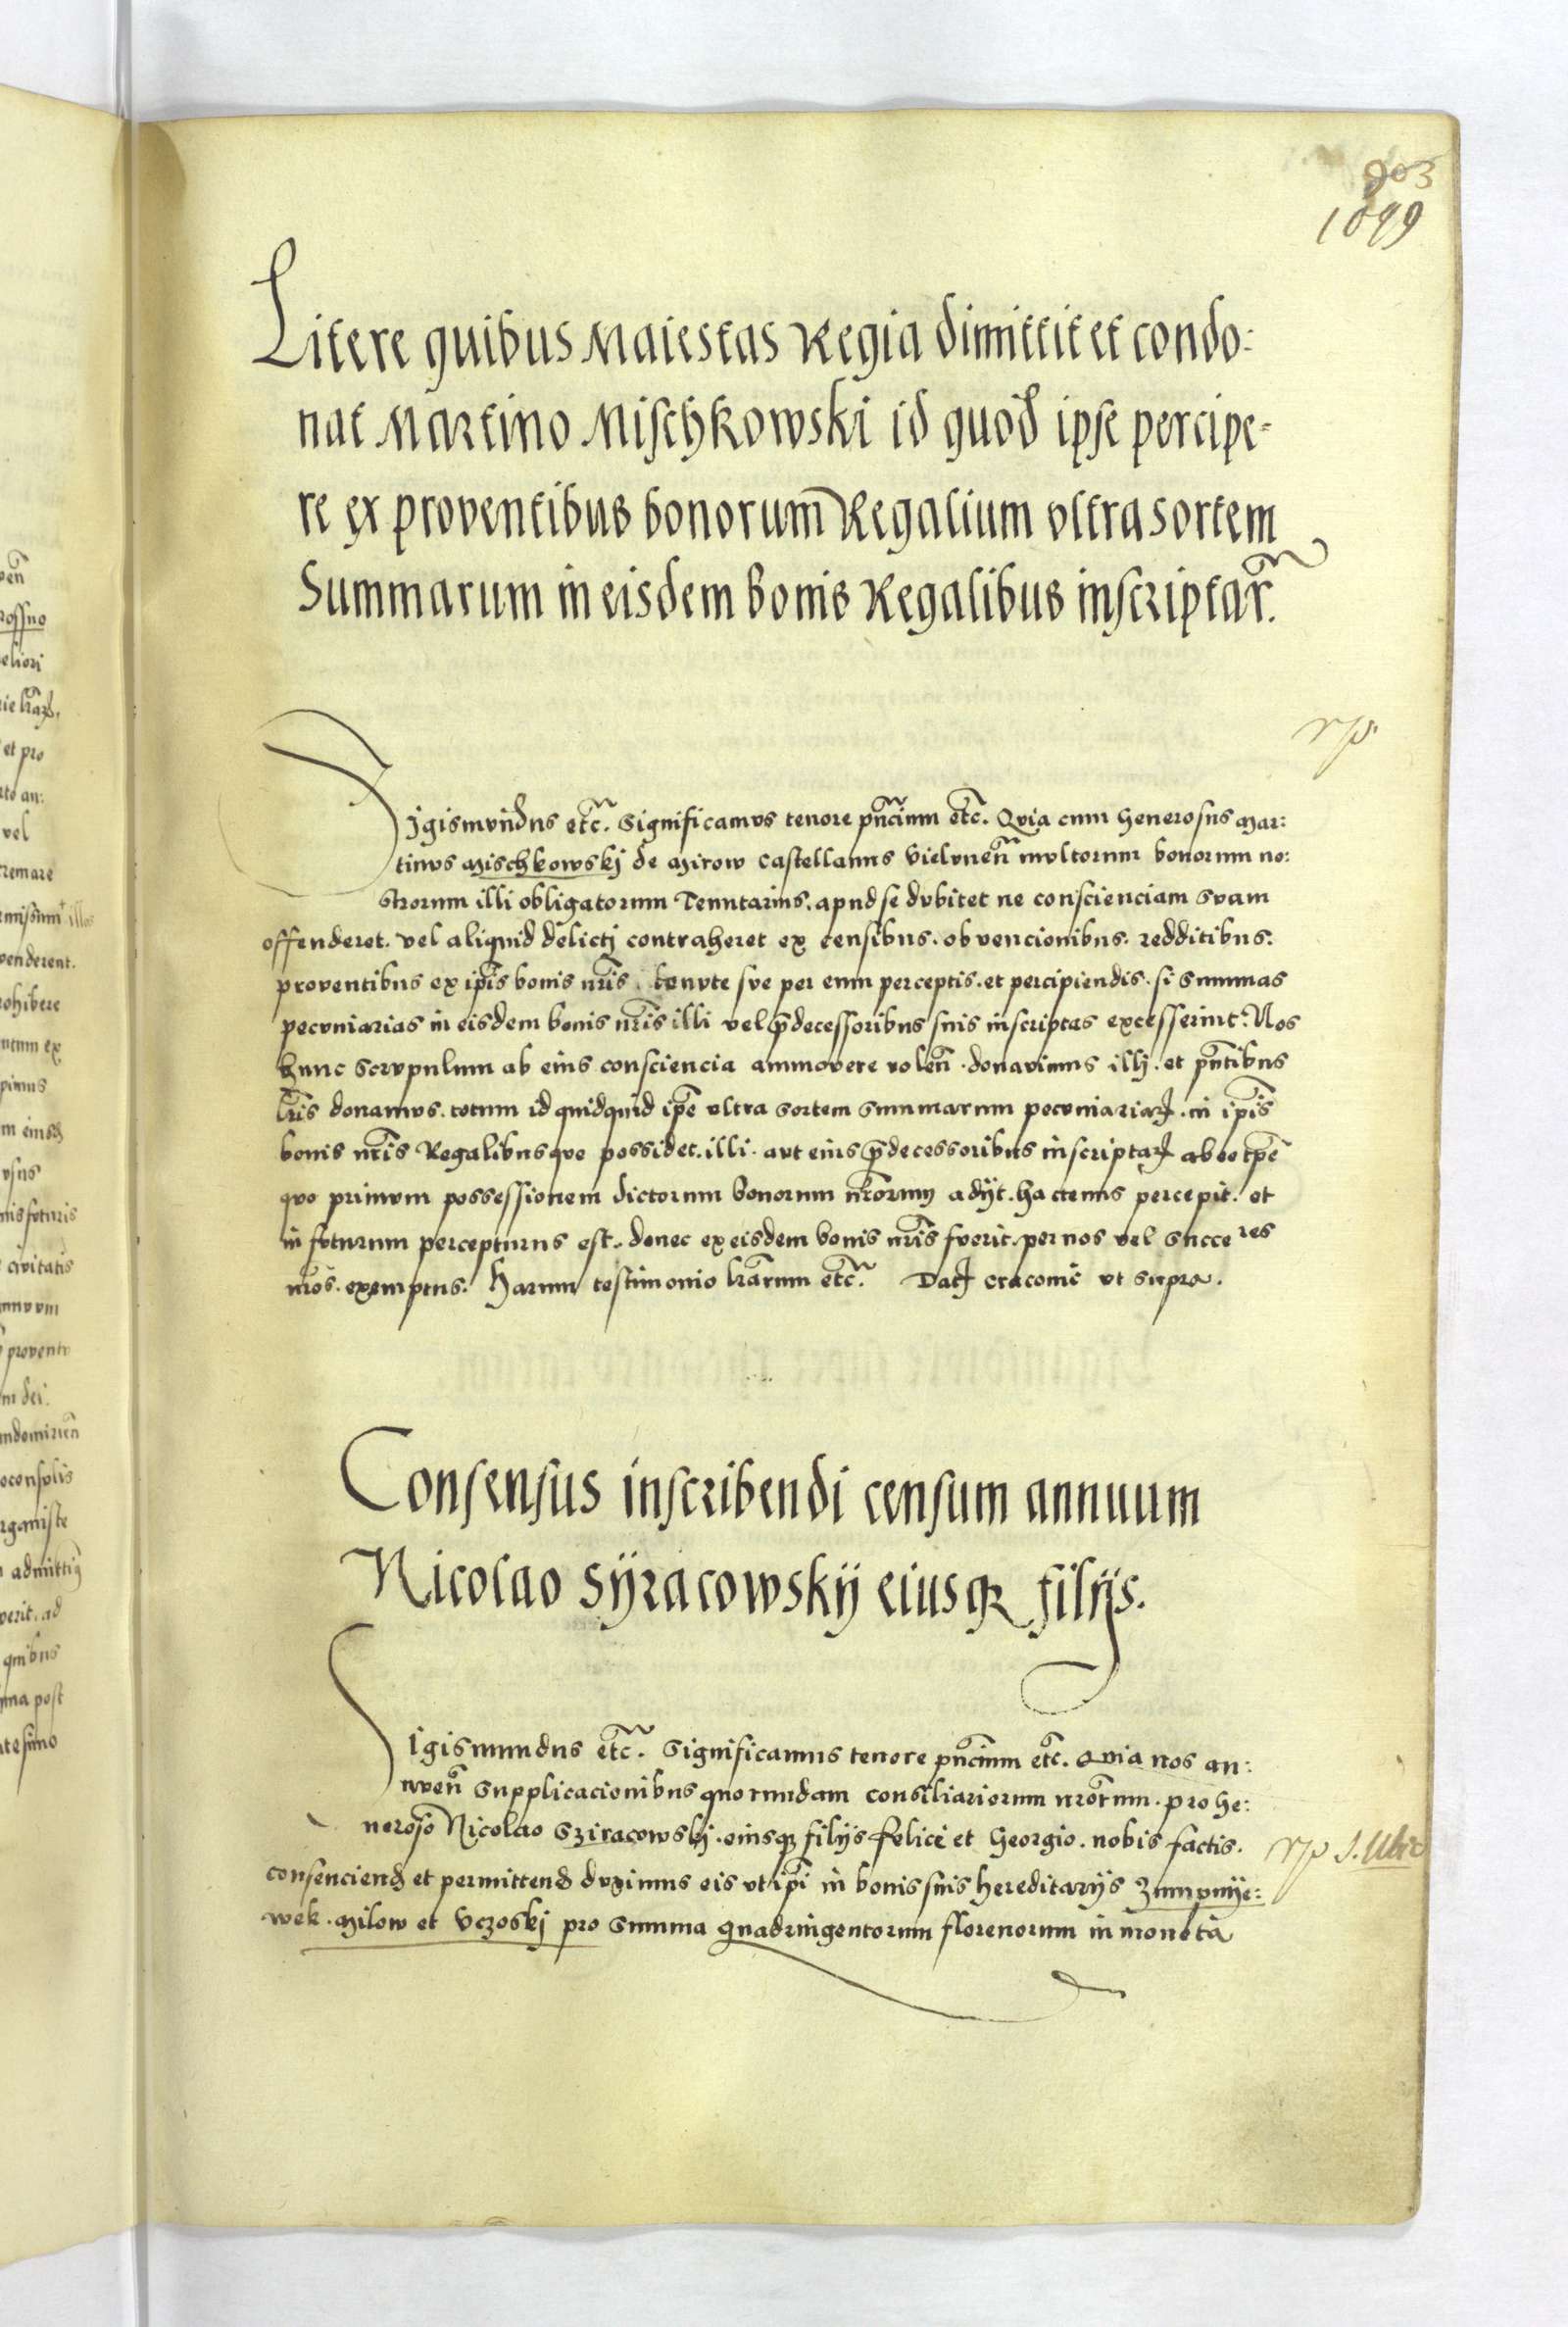 903
1099
Litere quibus Maiestas Regia dimittit et condo:
nat Martino Mischkowski id quod ipse percipe-
re ex proventibus bonorum Regalium vltra sortem
Summarum in eisdem bonis Regalibus inscriptar̃.
rp.
Sigismvndus etc̃. Significamvs tenore pñcium etc̃. Qvia cum Generosus Mar:
tinvs Mischkowskj de Mirow Castellanus Vielvneñ mvltorum bonorum no:
strorum illi obligatorum Tenutarius. apud se dvbitet ne conscienciam svam
offenderet. vel aliquid delictj contraheret ex censibus. obvencionibus. redditibus.
proventibus ex ip̃is bonis nr̃is tenvte sve per eum perceptis. et percipiendis. si summas
pecvniarias in eisdem bonis nr̃is illi vel p̃decessoribus suis inscriptas excesserint. Nos
hunc Scrvpulum ab eius consciencia ammovere voleñ. donavimus illj. et pñtibus
lr̃is donamvs. totum id quidquid ip̃e vltra sortem summarum pecvniariaꝝ. in ip̃is
bonis nr̃is Regalibus qve possidet. illi. avt eius p̃decessoribus inscriptaꝝ ab eo tp̃e
qvo primvm possessionem dictorum bonorum nr̃orum adijt. hactenus percepit. et
in fvturum percepturus est. donec ex eisdem bonis nr̃is fverit. per nos vel succe res
nr̃os. exemptus. Harum testimonio lr̃arum etc̃. Datꝝ Cracovie vt supra.
Consensus inscribendi censum annuum
Nicolao Sÿracowskÿ eiusqꝫ filijs.
Sigismundus etc̃. Significamus tenore pñcium etc̃. Qvia nos an:
nveñ supplicacionibus quorundam consiliariorum nr̃orum. pro Ge:
neroso Nicolao Sziracowskj. eiusqꝫ filijs Felice et Georgio. nobis factis.
rp
consenciend et permittend dvximus eis vt ip̃i in bonis suis hereditarijs
wek. Milow et Vczoskj pro summa quadringentorum florenorum in moneta